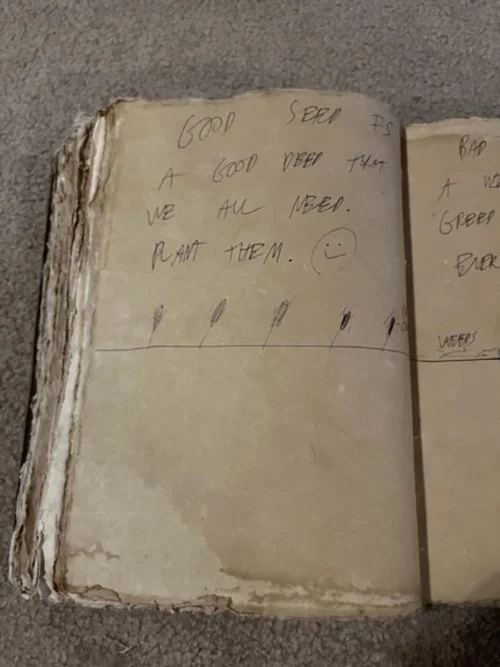 GOOD SEED IS
A GOOD DEED THAT
WE ALL NEED.
PLANT THEM.
BAD
A
GREED
EVER
WEEDS